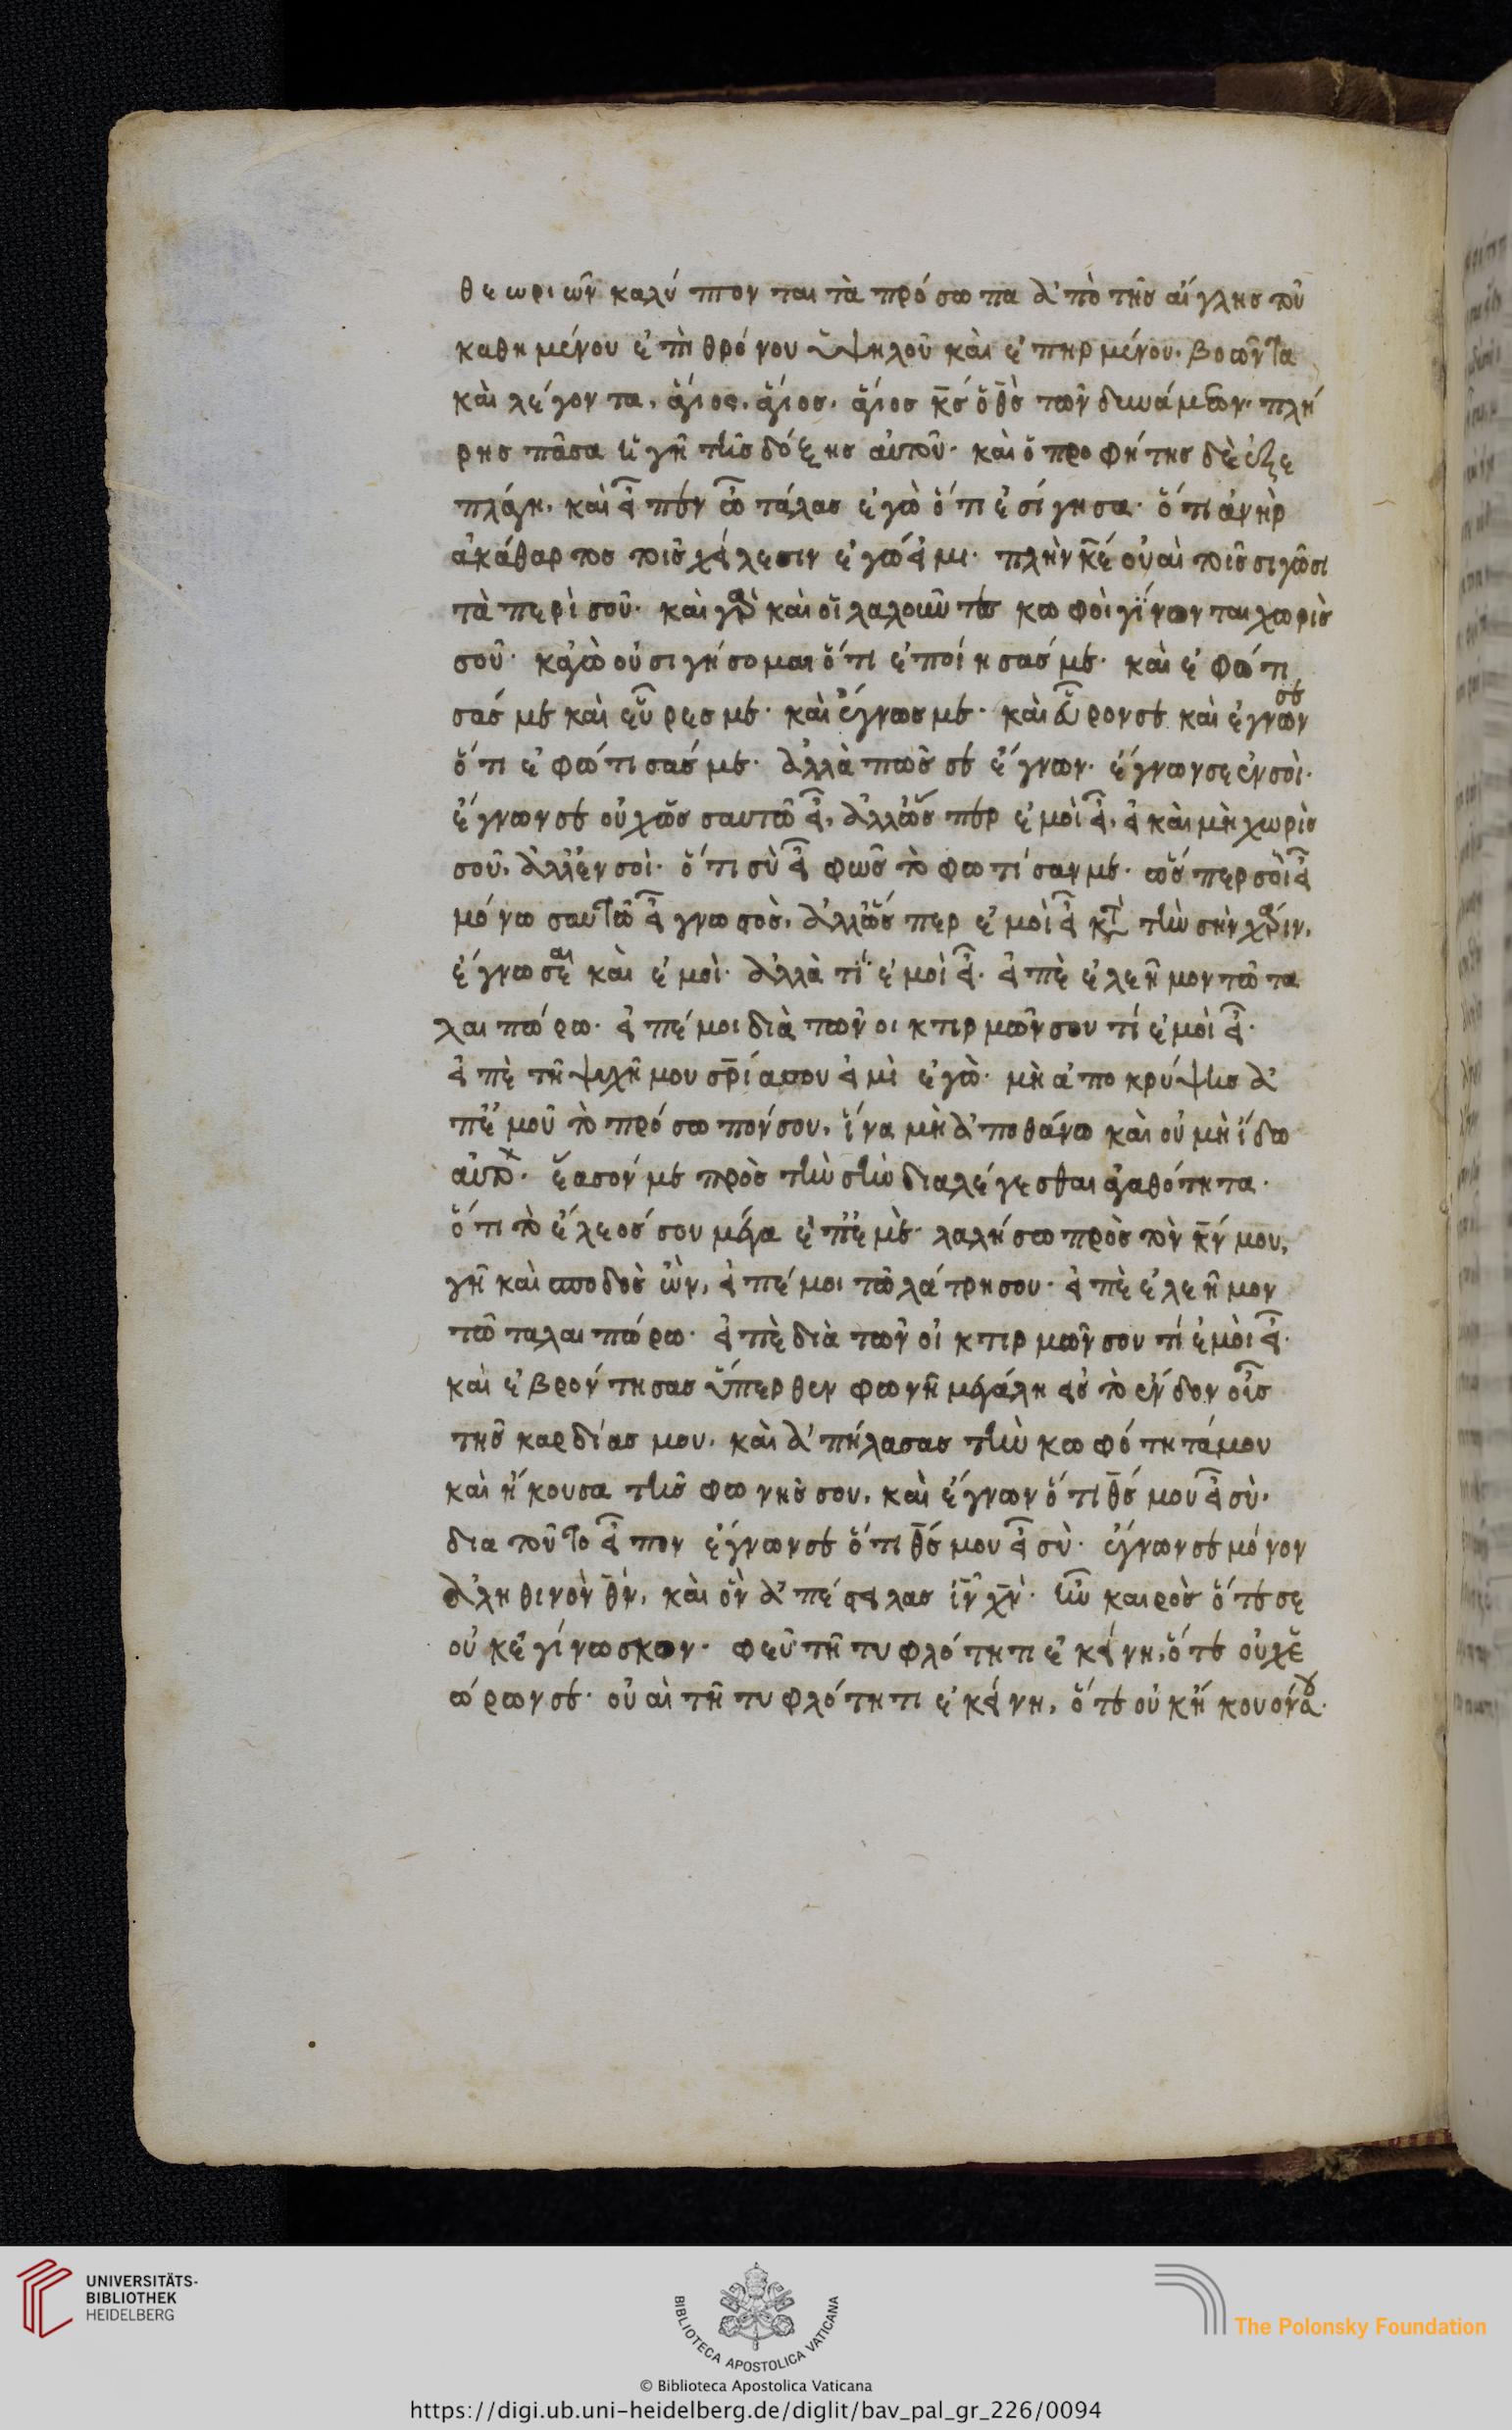 θεωριῶν καλύπτονται τὰ πρόσωπα ἀπὸ τῆς αἴγλης τοῦ
καθημένου ἐπὶ θρόνου ὑψηλοῦ καὶ ἐπηρμένου. βοῶντα
καὶ λέγοντα, ἅγιος, ἅγιος, ἅγιος κ̅ς ὁ θ̅ς τῶν δυνάμεων. πλή
ρης πᾶσα ἡ γῆ τῆς δόξης αὐτοῦ. καὶ ὁ προφήτης δὲ ἐξε
πλάγη, καὶ εἶπεν ὦ τάλας ἐγὼ ὅτι ἐσίγησα. ὅτι ἀνὴρ
ἀκάθαρτος τοῖς χείλεσιν ἐγώ εἰμι. πλὴν κ̅ε οὐαὶ τοῖς σιγῶσι
τὰ περὶ σοῦ. καὶ γὰρ καὶ οἱ λαλοῦντες κωφοὶ γίνονται χωρὶς
σοῦ. κἀγὼ οὐ σιγήσομαι ὅτι ἐποίησάς με. καὶ ἐφώτι
σάς με καὶ εὗρές με. καὶ ἔγνως με. καὶ εὗρόν σε καὶ ἔγνων σε
ὅτι ἐφώτισάς με. ἀλλὰ πῶς σε ἔγνων. ἔγνων σε ἐν σοὶ.
ἔγνων σε οὐχ ὡς σαυτῶ εἶ, ἀλλ' ὥσπερ ἐμοὶ εἶ, εἰ καὶ μὴ χωρὶς
σοῦ, ἀλλ' ἐν σοὶ. ὅτι σὺ εἶ φῶς τὸ φωτίσαν με. ὥσπερ σοὶ εἶ
μόνω σαυτῶ εἶ γνωστὸς, ἀλλ' ὥσπερ ἐμοὶ εἶ κατὰ τὴν σὴν χάριν,
ἐγνώσαι καὶ ἐμοὶ. ἀλλὰ τί ἐμοὶ εἶ. εἰπὲ ἐλεῆμον τῶ τα
λαιπώρω. εἰπέ μοι διὰ τῶν οἰκτιρμῶν σου τί ἐμοὶ εἶ.
εἰπὲ τῆ ψυχῆ μου σ̅ρ̅ία σου εἰμὶ ἐγὼ. μὴ ἀποκρύψης ἀ
π' ἐμοῦ τὸ πρόσωπόν σου, ἵνα μὴ ἀποθάνω καὶ οὐ μὴ ἴδω
αὐτό. ἔασόν με πρὸς τὴν σὴν διαλέγεσθαι ἀγαθότητα.
ὅτι τὸ ἔλεός σου μέγα ἐπ' ἐμὲ. λαλήσω πρὸς τὸν κ̅ν μου,
γῆ καὶ σποδὸς ὢν, εἰπέ μοι τῶ λάτρη σου. εἰπὲ ἐλεῆμον
τῶ ταλαιπώρω. εἰπὲ διὰ τῶν οἰκτιρμῶν σου τί ἐμοὶ εἶ.
καὶ ἐβρόντησας ὕπερθεν φωνῆ μεγάλη εἰς τὸ ἔνδον οὖς
τῆς καρδίας μου. καὶ ἀπήλασας τὴν κωφότητά μου
καὶ ἤκουσα τῆς φωνῆς σου, καὶ ἔγνων ὅτι θ̅ς μου εἶ σὺ.
δια τοῦτο εἶπον ἔγνων σε ὅτι θ̅ς μου εἶ σὺ. ἔγνων σε μόνον
ἀληθινὸν θ̅ν, καὶ ὃν ἀπέστειλας ι̅ν χ̅ν. ἦν καιρὸς ὅτε σε
οὐκ ἐγίνωσκον. φεῦ τῆ τυφλότητι ἐκείνη, ὅτε οὐχ ἑ
ώρων σε. οὐαὶ τῆ τυφλότητι ἐκείνη, ὅτε οὐκ ἤκουόν σου.
UNIVERSITÄTS-
BIBLIOTHEK
HEIDELBERG
BIBLIOTECA APOSTOLICA VATICANA
The Polonsky Foundation
© Biblioteca Apostolica Vaticana
https://digi.ub.uni-heidelberg.de/diglit/bav_pal_gr_226/0094